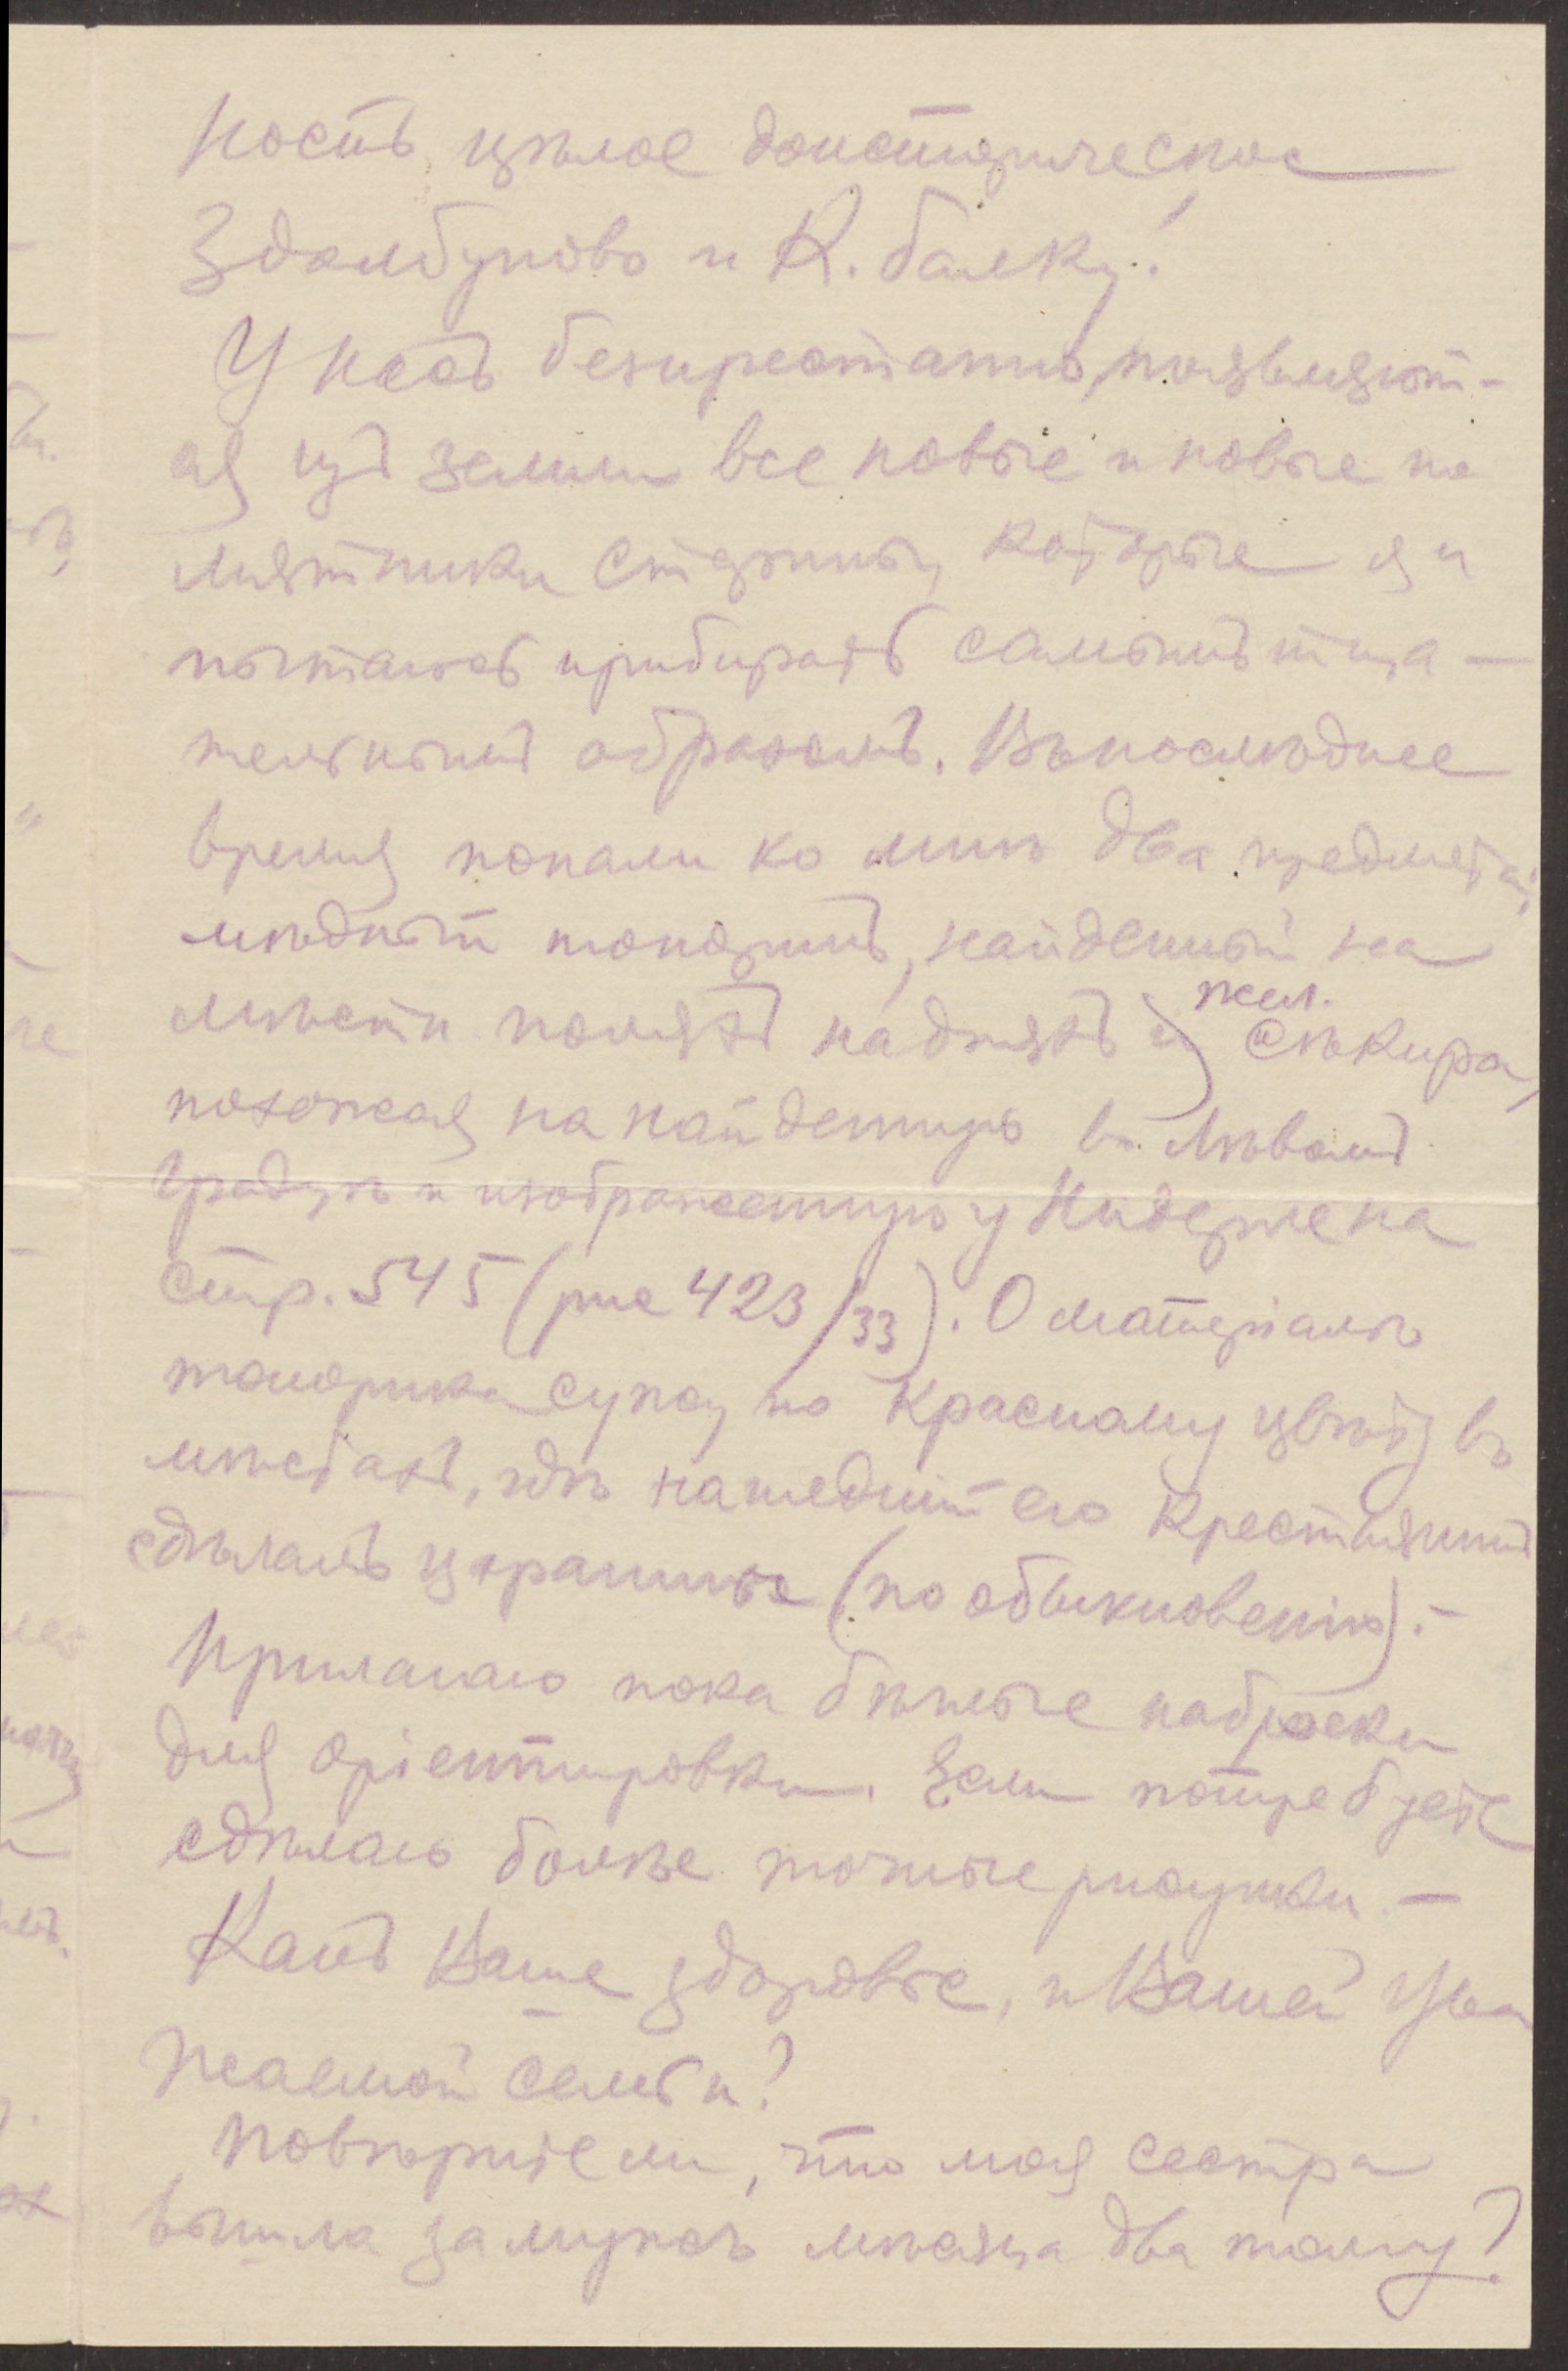 ность целое доисторическое
Здолбуново и К. балку!
У насъ безпрестанно появляют-
ся изъ земли все новые и новые па
мятники старины, которые я и
пытаюсь прибирать самымъ тща-
тельнымъ образомъ. Въ последнее
время попали ко мнѣ два предмета:
мѣдный топорикъ, найденный на
мѣстѣ поляхъ на дняхъ и жел. сѣкира,
похожая на найденную въ Львовѣ
Градукъ и изображенную у Нидерле на
стр. 545 (рис 423/33). О матеріалѣ
топорика сужу по красному цвѣту въ
мѣстахъ, гдѣ нашедшій его крестьянинъ
сдѣлалъ царапины (по обыкновенію).-
Прилагаю пока бѣглые наброски
для оріентировки. Если потребуете
сдѣлаю болѣе точные рисунки. -
Какъ Ваше здоровье, и Вашей Ува
жаемой семьи?
Повѣрите ли, что моя сестра
вышла замужъ мѣсяца два тому?